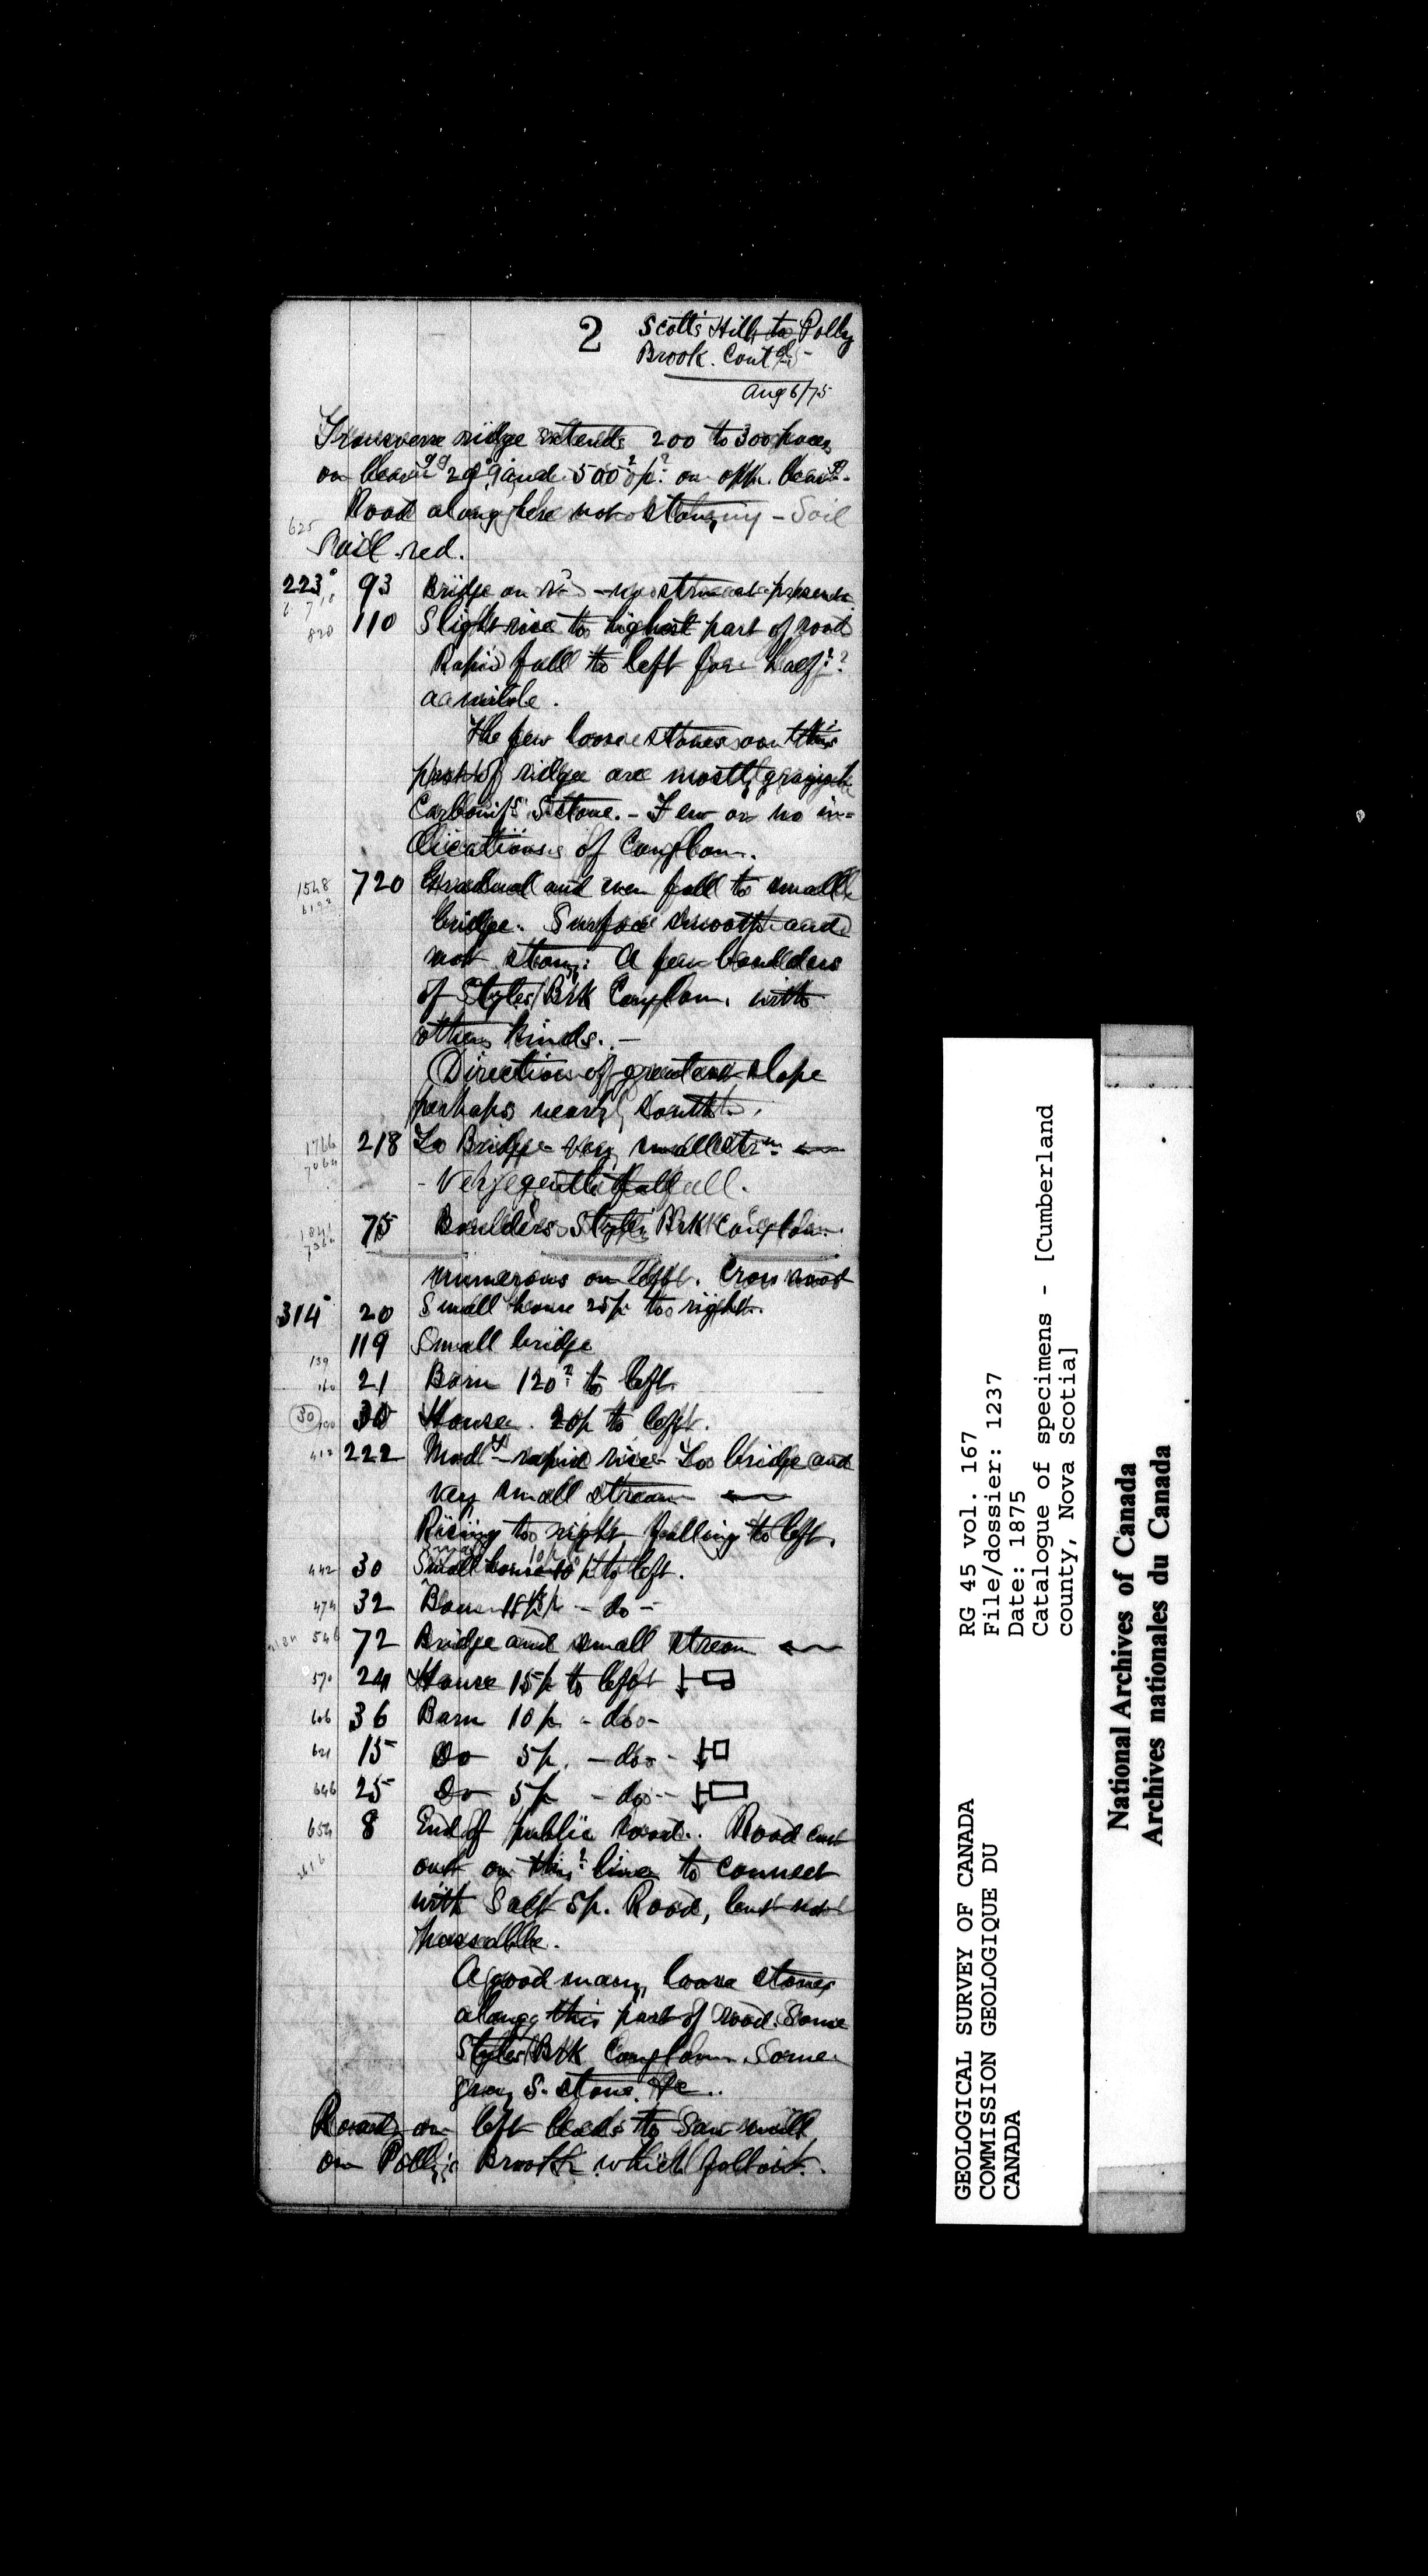 2
Scotts Hill to Polly
Brook. Contd -
Aug 6/75
Transverse ridge extends 200 to 300 paces
on bearg 29° and 500? p? on opp. bearg.
Road along here not stony - Soil
625
Soil red.
223° 93 Bridge on rd - no stream at present
710
820 110 Slight rise to highest part of road
Rapid fall to left for half?
a mile.
The few loose stones on this
part of ridge are mostly grayish
Carbonifs S. stone. - Few or no in-
dications of Conglom.
1548 720 Gradual and even fall to small
6192
bridge. Surface smooth and
not stony. A few boulders
of Styles Brk Conglom. with
other kinds. -
Direction of greatest slope
perhaps nearly South.
1766 218 To Bridge - very small strm ←
7064
- Very gentle fall.
1841 75 Boulders Styles Brk Conglom.
7364
numerous on left. Cross road
314° 20 Small house 25p to right.
139 119 Small bridge
160 21 Barn 120? to left
30 190 30 House. 20p to left.
412 222 Mody rapid rise - To bridge and
very small stream ←
Rising to right falling to left.
442 30 Small house 10p to left.
474 32 Barn 18p - do -
546 72 Bridge and small stream ←
570 24 House 15p to left
606 36 Barn 10p - do -
621 15 Do 5p. - do -
646 25 Do 5p - do -
654 8 End of public road. Road cut
2616
out on this? line to connect
with Salt Sp. Road, but not
passable.
A good many loose stones
along this part of road. Some
Styles Brk Conglom. Some
gray S. stone &c.
Road on left leads to Saw mill
on Polly's Brook which follow.
GEOLOGICAL SURVEY OF CANADA
COMMISSION GEOLOGIQUE DU
CANADA
RG 45 vol. 167
File/dossier: 1237
Date: 1875
Catalogue of specimens - [Cumberland
county, Nova Scotia]
National Archives of Canada
Archives nationales du Canada